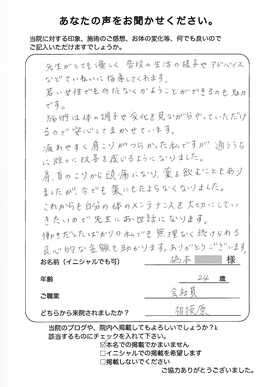 あなたの声をお聞かせください。
当院に対する印象、施術のご感想、お体の変化等、何でも良いので
ご記入いただけますでしょうか。
先生がとても優しく、普段の生活の様子やアドバイス
などていねいに指導してくれます。
若い女性でも気兼ねなくかようことができるのも魅力
です。
施術は体の調子や変化を見ながらやっていただけ
るので安心してまかせています。
疲れやすく肩こりがつらかった私ですが、通ううち
に段々と改善を感じるようになりました。
肩、首のこりから頭痛になり、薬を飲むこともあり
ましたが、今では薬にもたよらなくなりました。
これからも自分の体のメンテナンスを大切にしてい
きたいので先生にお世話になります。
働きだしたばかりの私でも無理なく続けられる
良心的な金額も助かります。ありがとうございます。
お名前(イニシャルでも可) 橋本 様
年齢 24 歳
ご職業 会社員
どちらから来院されましたか? 相模原
当院のブログや、院内へ掲載してもよろしいでしょうか?
該当するものにチェックを入れて下さい。
☑本名での掲載でかまいません
□イニシャルでの掲載を希望します
□掲載しないでください
ご協力ありがとうございました。